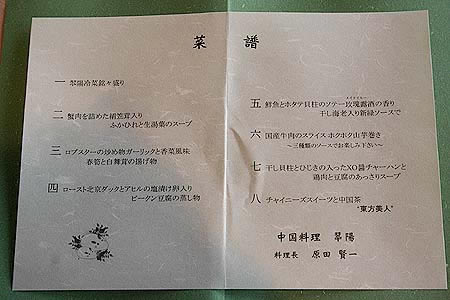 菜 譜
一 翆陽冷菜銘々盛り
二 蟹肉を詰めた絹笠茸入り
ふかひれと生湯葉のスープ
三 ロブスターの炒め物ガーリックと香菜風味
春筍と白舞茸の揚げ物
四 ロースト北京ダックとアヒルの塩漬け卵入り
ピータン豆腐の蒸し物
五 鮮魚とホタテ貝柱のソテー玫瑰露酒の香り
干し海老入り新緑ソースで
六 国産牛肉のスライス ホクホク山芋巻き
～三種類のソースでお楽しみ下さい～
七 干し貝柱とひじきの入ったXO醤チャーハンと
鶏肉と豆腐のあっさりスープ
八 チャイニーズスイーツと中国茶
"東方美人"
中国料理 翆陽
料理長 原田 賢一